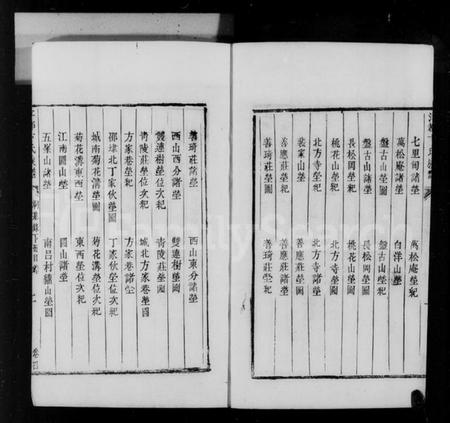 七里甸諸塋
萬松庵塋紀
萬松庵諸塋
白洋山塋
盤古山塋圖
盤古山塋紀
盤古山諸塋
長松岡塋圖
長松岡塋紀
桃花山塋圖
桃花山塋紀
北方寺塋圖
北方寺塋紀
北方寺諸塋
裴家山塋
善應莊塋圖
善應莊塋紀
善應莊諸塋
善琦莊塋圖
善琦莊塋紀
善琦莊諸塋
西山東分諸塋
西山西分諸塋
雙連樹塋圖
雙連樹塋位次紀
青陵莊塋圖
青陵莊塋位次紀
城北方家巷塋圖
方家巷塋紀
方家巷諸塋
邵埭北丁家伙塋圖
丁家伙塋位次紀
城南菊花溝塋圖
菊花溝塋位次紀
菊花溝東西塋
東西塋位次紀
江南圌山塋
圌山諸塋
五峯山諸塋
南呂村塋圖
卷四